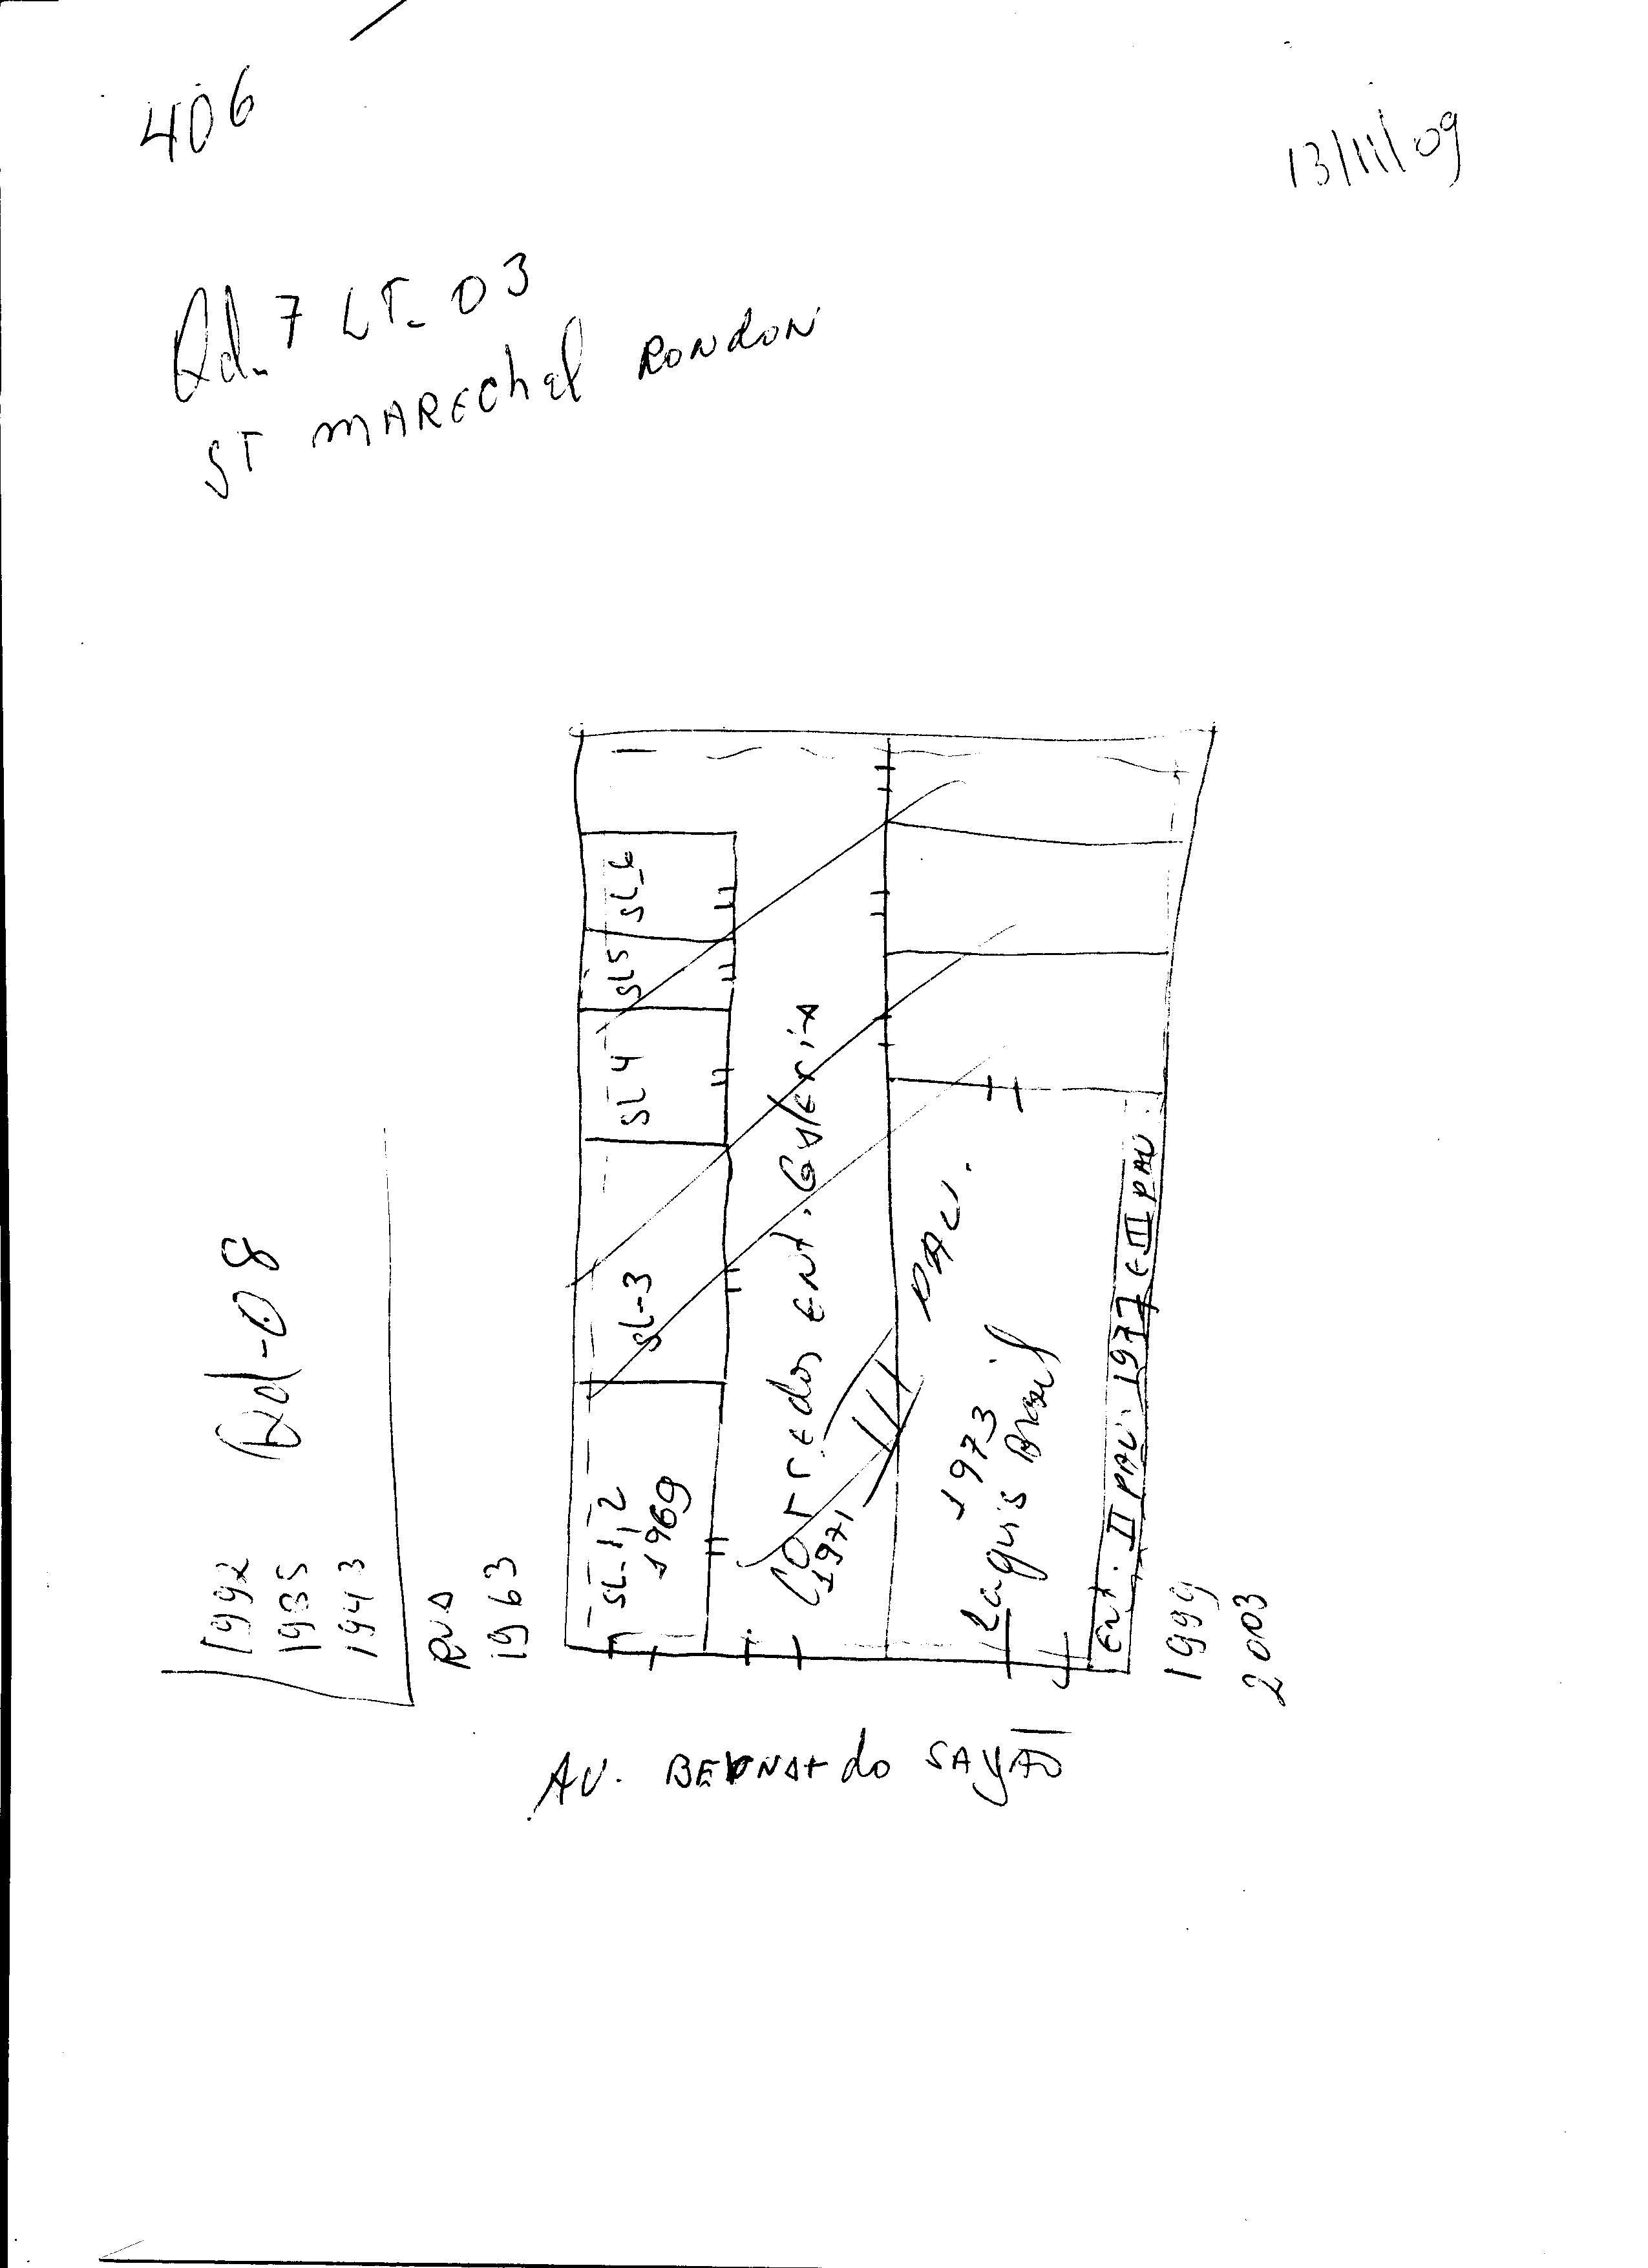 406
13/11/09
Qd. 7 LT. 03
ST MARECHAL RONDON
Qd-08
1992
1985
1943
RUA
1963
SL-6
SL5
SL4
SL-3
SL-1,2
1969
Corredor Ent. Galeria
1971
PAV.
1973
Laquis Brasil
Ent. II PAV. 1977 E III PAV
1999
2003
AV. BERNARDO SAYÃO